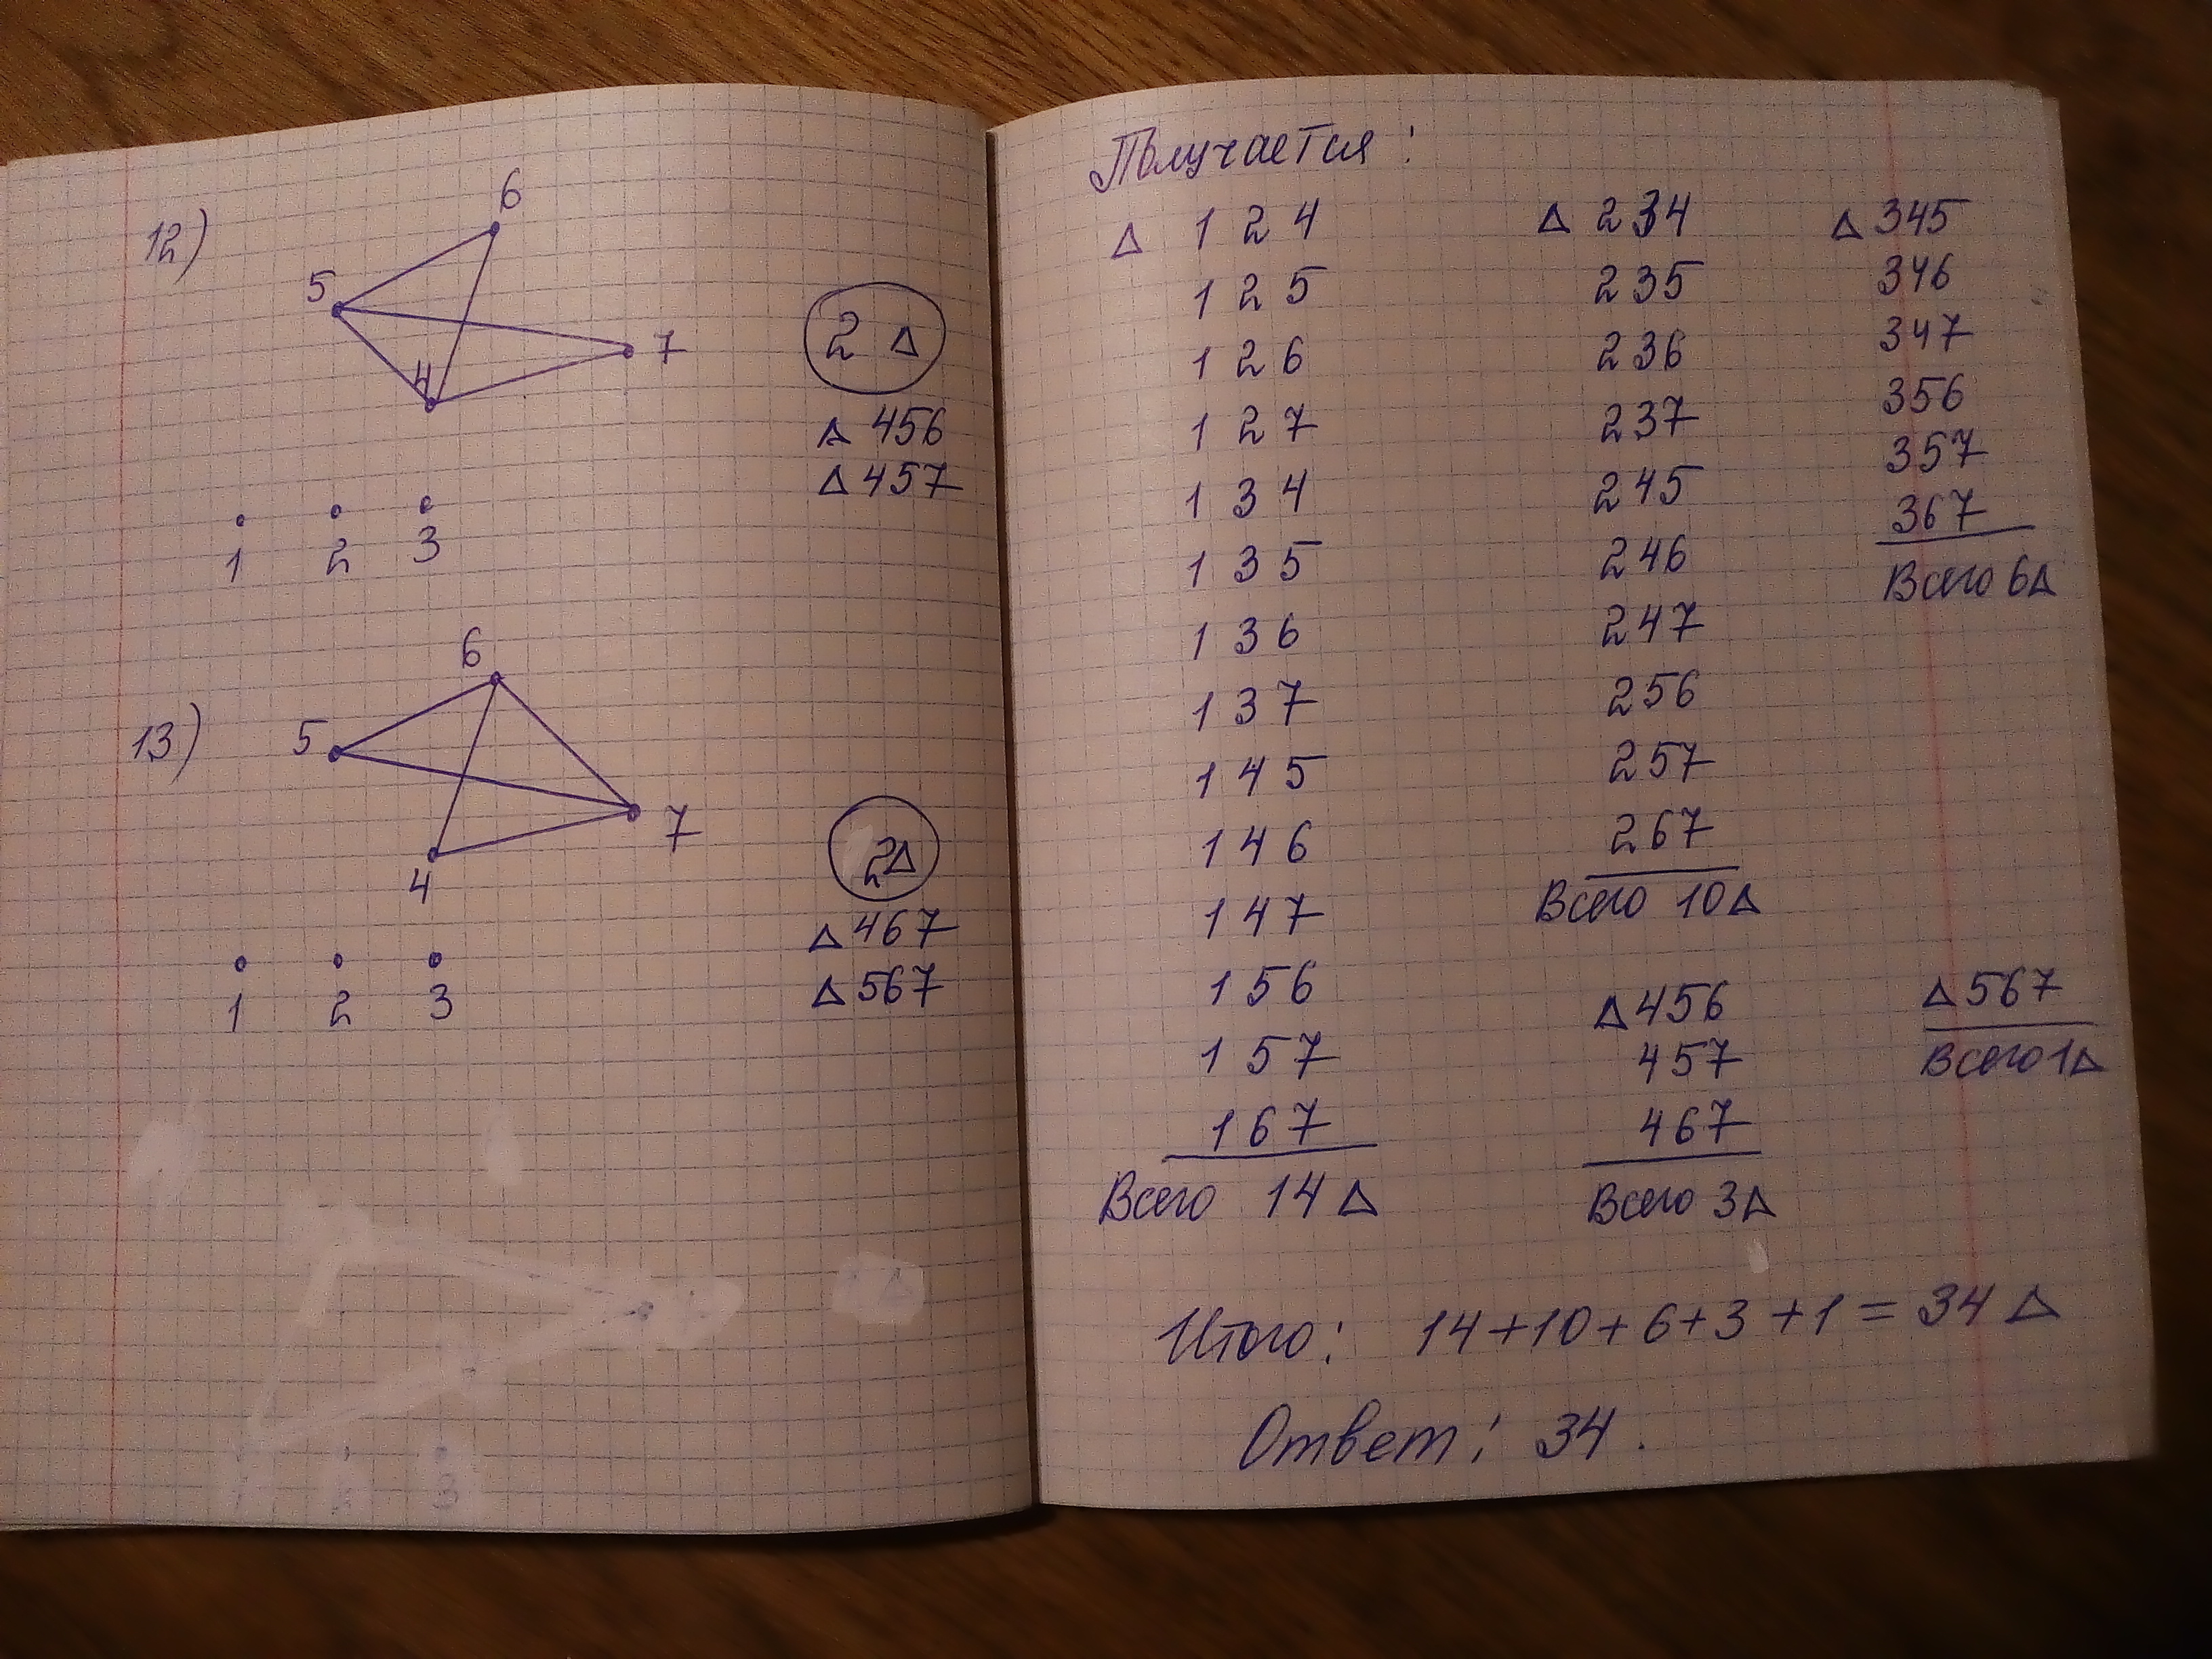 12)
6
5
7
4
2 Δ
Δ 456
Δ 457
1 2 3
13)
6
5
7
4
2Δ
Δ 467
Δ 567
1 2 3
Получается:
Δ 1 2 4
1 2 5
1 2 6
1 2 7
1 3 4
1 3 5
1 3 6
1 3 7
1 4 5
1 4 6
1 4 7
1 5 6
1 5 7
1 6 7
Всего 14 Δ
Δ 234
235
236
237
245
246
247
256
257
267
Всего 10Δ
Δ 345
346
347
356
357
367
Всего 6Δ
Δ 456
457
467
Всего 3Δ
Δ 567
Всего 1Δ
Итого: 14+10+6+3+1=34 Δ
Ответ: 34.